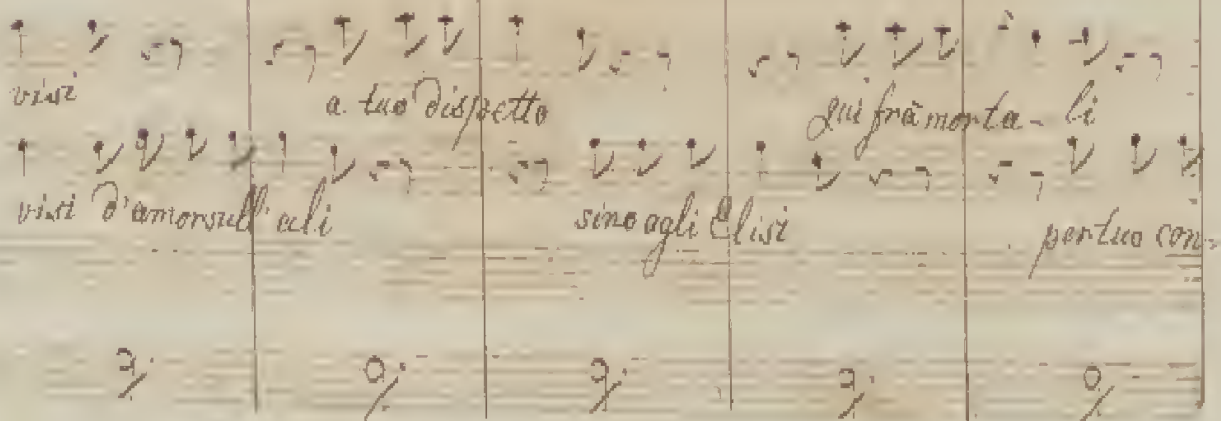 visi a tuo dispetto qui frà morta - li
visi d'amor sull' ali sino agli Elisi per tuo con=